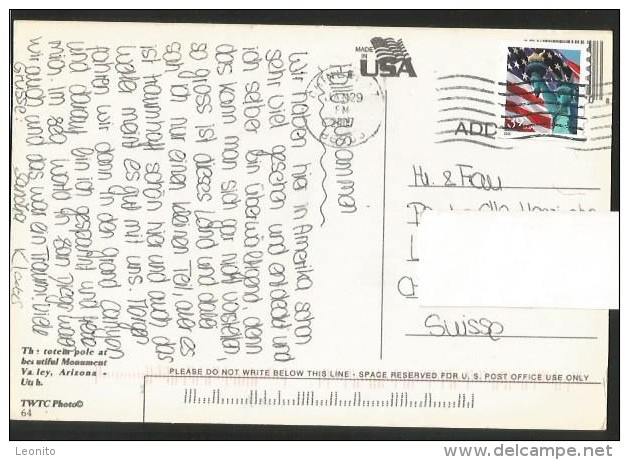 MADE IN
USA
2007
ADD
Hallo zusammen
Wir haben hier in Amerika schon
sehr viel gesehen und entdeckt und
ich selber bin überwältigend, denn
das kann man sich gar nicht vorstellen,
so gross ist dieses Land und dabei
sah ich nur einen kleinen Teil, aber es
ist traumhaft schön hier und auch das
Wetter meint es gut mit uns. Morgen
fahren wir dann in den Grand Canyon
und darauf bin ich gespannt und freue
mich. In San
wir auch und das war ein Traum! Viele
Grüsse: Sandra
Hr. & Frau
Suisse
The totem pole at
beautiful Monument
Valley, Arizona -
Utah.
TWTC Photo©
64
PLEASE DO NOT WRITE BELOW THIS LINE - SPACE RESERVED FOR U.S. POST OFFICE USE ONLY
Leonito
www.delcampe.net